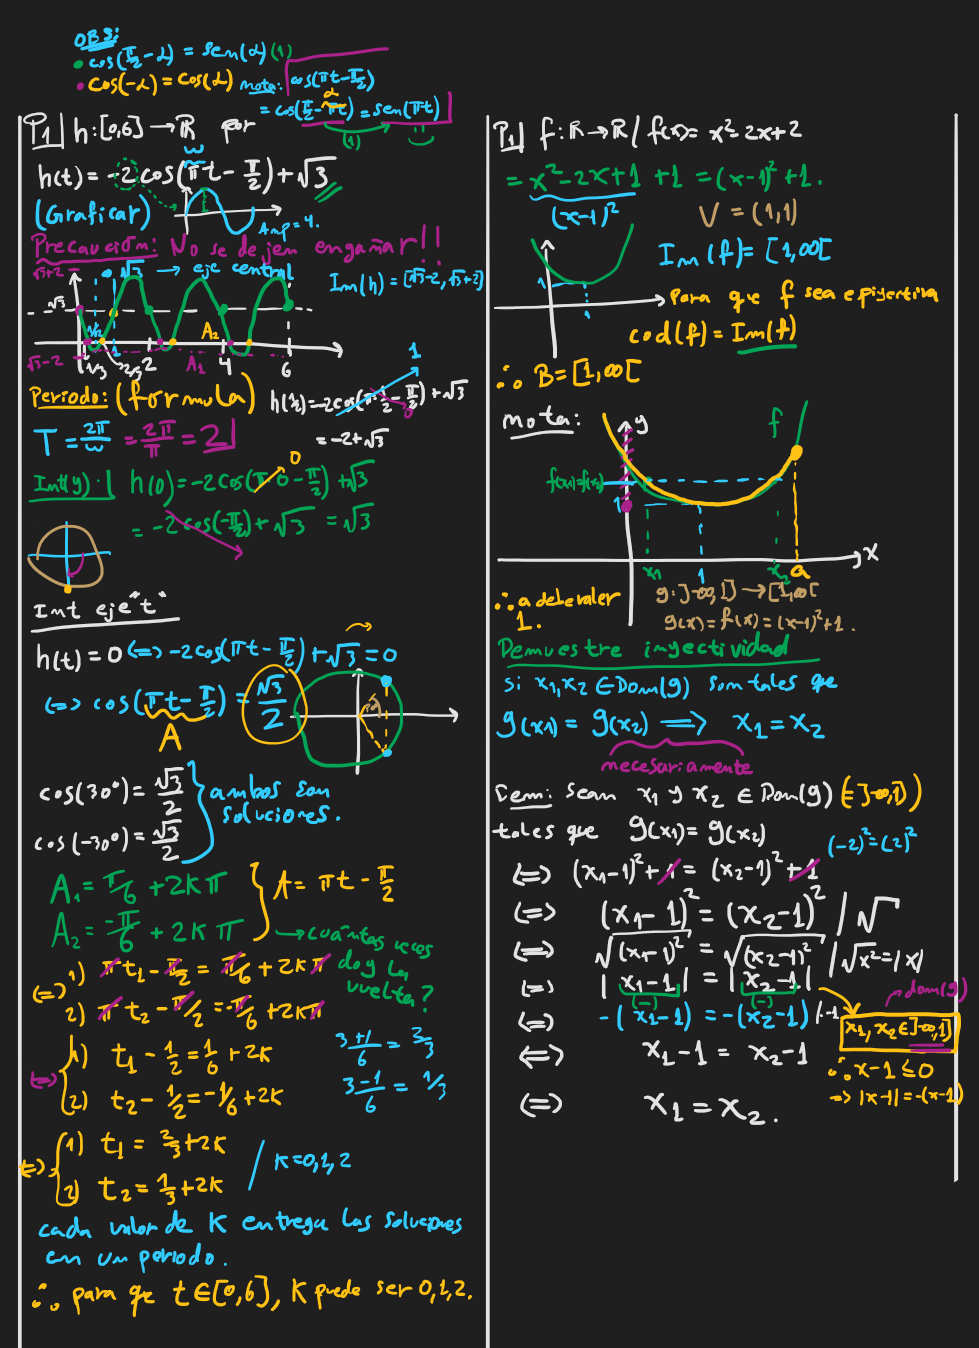 OBS:
• cos(π/2 - α) = sen(α) (1)
• cos(-α) = cos(α)
nota: cos(πt - π/2)
= cos(π/2 - πt) = sen(πt)
α
(1)
P1| h: [0,6] → ℝ por
ω
h(t) = -2cos(πt - π/2) + √3
(Graficar)
Amp = 4.
Precaución: No se dejen engañar!!
√3+2
√3 → eje central
Im(h) = [√3-2, √3+2]
√3
A2
√3-2
1/2
1
A1
1/3
2/3
2
4
6
Periodo: (formula)
T = 2π/ω = 2π/π = 2
h(1/2) = -2cos(π·1/2 - π/2) + √3
1
0
= -2+√3
Int(y): h(0) = -2cos(π·0 - π/2) + √3
0
= -2cos(-π/2) + √3 = √3
Int eje "t"
h(t) = 0 <=> -2cos(πt - π/2) + √3 = 0
<=> cos(πt - π/2) = √3/2
A
cos(30°) = √3/2
cos(-30°) = √3/2
ambos son
soluciones.
A1 = π/6 + 2kπ
A2 = -π/6 + 2kπ
A = πt - π/2
→ cuántas veces
doy la
vuelta?
<=> 1) πt1 - π/2 = π/6 + 2kπ
2) πt2 - π/2 = -π/6 + 2kπ
<=> 1) t1 - 1/2 = 1/6 + 2k
2) t2 - 1/2 = -1/6 + 2k
3+1/6 = 2/3
3-1/6 = 1/3
<=> 1) t1 = 2/3 + 2k
2) t2 = 1/3 + 2k
/ k=0,1,2
cada valor de k entrega las soluciones
en un periodo.
∴ para que t ∈ [0,6], k puede ser 0,1,2.
P1| f: ℝ → ℝ / f(x) = x² - 2x + 2
= x² - 2x + 1 + 1 = (x-1)² + 1.
(x-1)²
V = (1,1)
Im(f) = [1,∞[
1
1
→ para que f sea epiyectiva
cod(f) = Im(f)
∴ B = [1,∞[
nota:
y
f
f(x1)=f(x2)
1
x
x1
1
x2
a
∴ a debe valer
1.
g: ]-∞,1] → [1,∞[
g(x) = f(x) = (x-1)² + 1.
Demuestre inyectividad
si x1, x2 ∈ Dom(g) son tales que
g(x1) = g(x2) => x1 = x2
necesariamente
Dem: sean x1 y x2 ∈ Dom(g) (∈ ]-∞,1])
tales que g(x1) = g(x2)
(-2)² = (2)²
<=> (x1-1)² + 1 = (x2-1)² + 1
<=> (x1-1)² = (x2-1)² / √
<=> √(x1-1)² = √(x2-1)² / √x² = |x|
<=> |x1-1| = |x2-1|
(-)
(-)
dom(g)
<=> -(x1-1) = -(x2-1) /·-1
x1, x2 ∈ ]-∞,1]
<=> x1-1 = x2-1
∴ x-1 ≤ 0
=> |x-1| = -(x-1)
<=> x1 = x2.